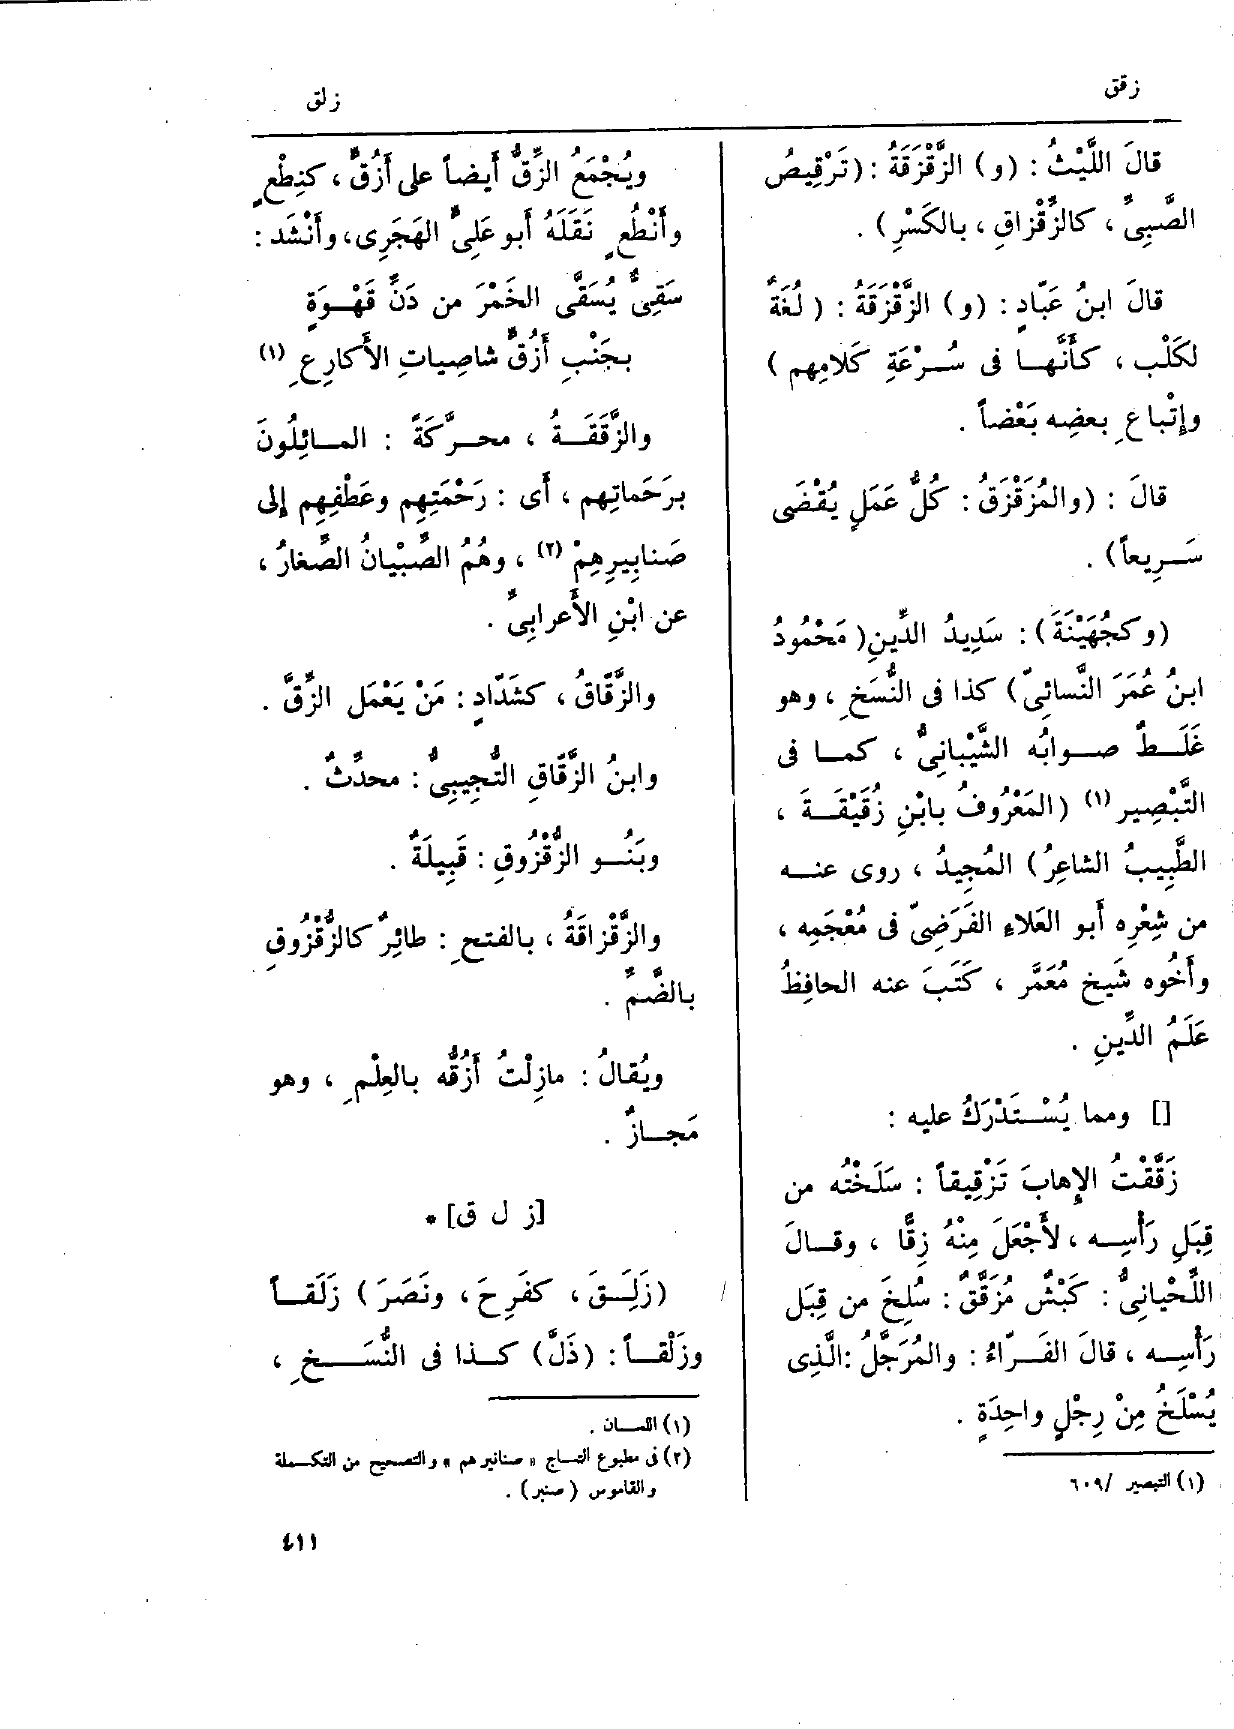 زقق
زلق
قالَ اللَّيْثُ : (و) الزَّقْزَقَةُ : (تَرْقِيصُ
الصَّبِىِّ ، كالزِّقْزاقِ ، بالكَسْرِ) .
قالَ ابنُ عَبّادٍ : (و) الزَّقْزَقَةُ : ( لُغَةٌ
لكَلْب ، كأَنَّهــا فى سُــرْعَةِ كَلامِهم )
وإِتْباعِ بعضِه بَعْضاً .
قالَ : (والمُزَقْزَقُ : كُلُّ عَمَلٍ يُقْضَى
سَــرِيعاً) .
(وكجُهَيْنَةَ) : سَدِيدُ الدِّينِ(مَحْمُودُ
ابنُ عُمَرَ النَّسائِىّ) كذا فى النُّسَخِ ، وهو
غَلَــطٌ صــوابُه الشَّيْبانِىُّ ، كمــا فى
التَّبْصِير (١) (المَعْرُوفُ بابْنِ زُقَيْقَــةَ ،
الطَّبِيبُ الشاعِرُ) المُجِيدُ ، روى عنــه
من شِعْرِه أَبو العَلاءِ الفَرَضِىّ فى مُعْجَمِه ،
وأَخُوه شَيخ مُعَمَّر ، كَتَبَ عنه الحافِظُ
عَلَمُ الدِّينِ .
[] ومما يُسْــتَدْرَكُ عليه :
زَقَّقْتُ الإِهابَ تَزْقِيقاً : سَلَخْتُه من
قِبَلِ رَأْسِــه ، لأَجْعَلَ مِنْهُ زِقًّا ، وقــالَ
اللِّحْيانِىُّ : كَبْشٌ مُزَقَّقٌ : سُلِخَ من قِبَل
رَأْسِــه ، قالَ الفَــرّاءُ : والمُرَجَّلُ :الَّذِى
يُسْلَخُ مِنْ رِجْلٍ واحِدَةٍ .
(١) التبصير /٦٠٩
ويُجْمَعُ الزِّقُّ أَيضاً على أَزُقٍّ ، كنِطْعٍ
وأَنْطُعٍ نَقَلَهُ أَبو عَلِىٍّ الهَجَرِى، وأَنْشَد :
سَقِىٌّ يُسَقَّى الخَمْرَ من دَنِّ قَهْــوَةٍ
بجَنْبِ أَزُقٍّ شاصِياتِ الأَكارِعِ (١)
والزَّقَقَــةُ ، محــرَّكَةً : المــائِلُونَ
برَحَماتِهم ، أَى : رَحْمَتِهِم وعَطْفِهِم إِلى
صَنابِيرِهِمْ (٢) ، وهُمُ الصِّبْيانُ الصِّغارُ ،
عن ابْنِ الأَعرابِىِّ .
والزَّقّاقُ ، كشَدّادٍ : مَنْ يَعْمَل الزِّقَّ .
وابنُ الزَّقّاقِ التُّجِيبِىُّ : محدِّثٌ .
وبَنُــو الزُّقْزُوقِ : قَبِيلَةٌ .
والزَّقْزاقَةُ ، بالفتحِ : طائِرٌ كالزُّقْزُوقِ
بالضَّمِّ .
ويُقالُ : مازِلْتُ أَزُقُّه بالعِلْمِ ، وهو
مَجــازٌ .
[ز ل ق] *
(زَلِــقَ ، كفَرِحَ ، ونَصَرَ ) زَلَقــاً
وزَلْقــاً : (ذَلَّ) كــذا فى النُّسَــخِ ،
(١) اللســان .
(٢) فى مطبوع التــاج « صنانيرهم » والتصحيح من التكــملة
والقاموس (صنبر) .
٤١١